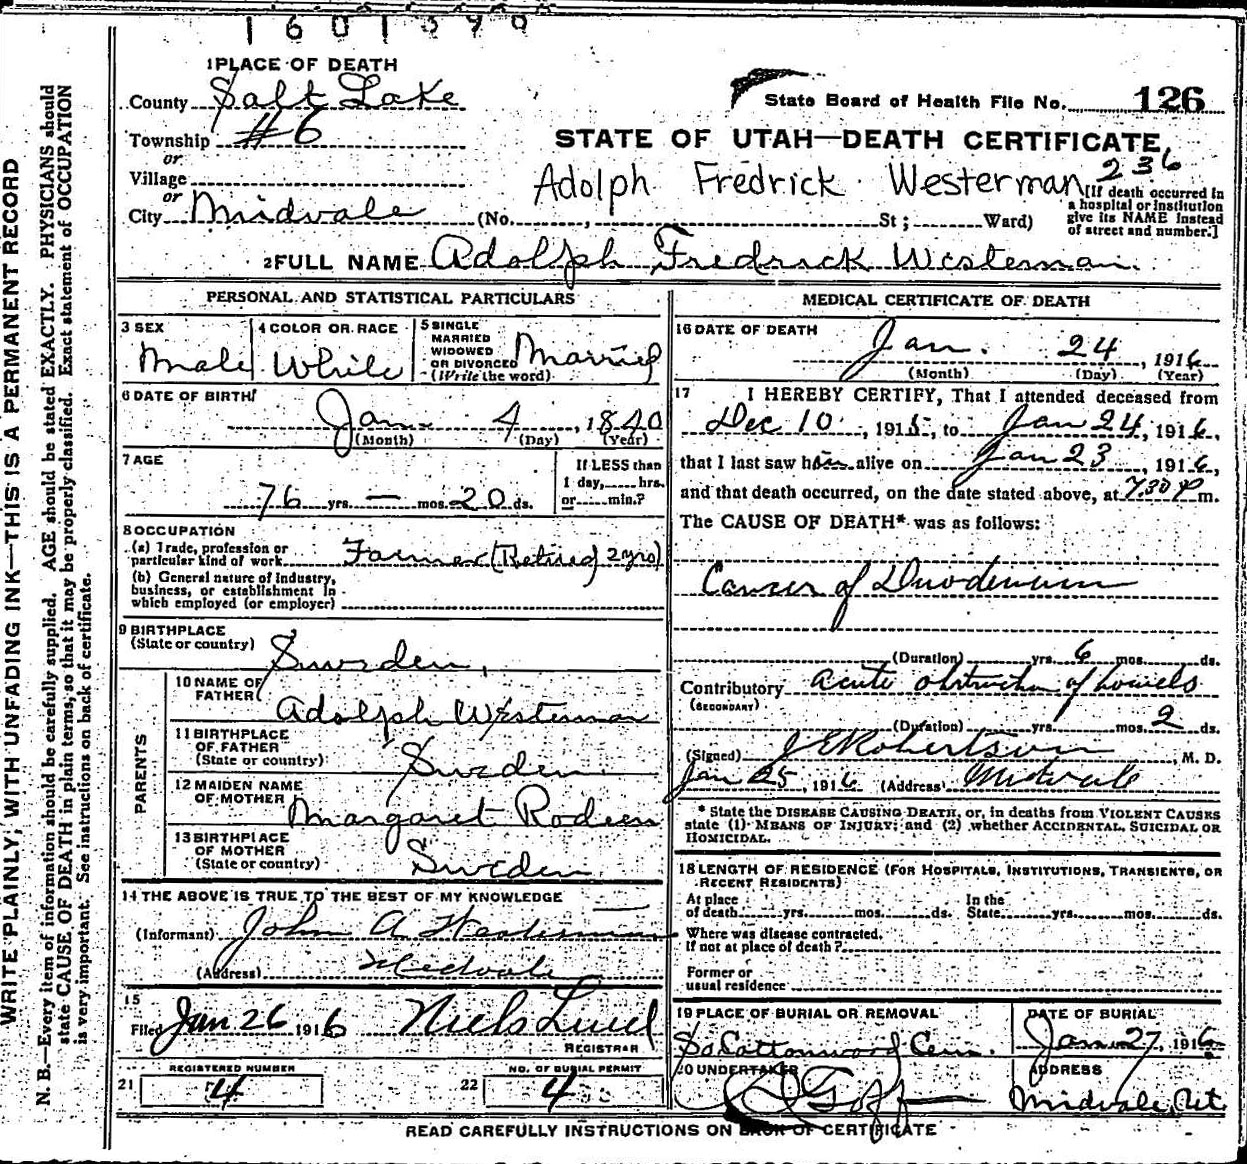 1601390
1 PLACE OF DEATH
County Salt Lake
State Board of Health File No. 126
Township #6
STATE OF UTAH—DEATH CERTIFICATE
or
Village
Adolph Fredrick Westerman 236
or
City Midvale (No. , St ; Ward)
[If death occurred in
a hospital or institution
give its NAME instead
of street and number.]
2 FULL NAME Adolph Fredrick Westerman
PERSONAL AND STATISTICAL PARTICULARS
3 SEX
Male
4 COLOR OR RACE
White
5 SINGLE
MARRIED
WIDOWED
OR DIVORCED
(Write the word)
Married
6 DATE OF BIRTH
Jan. 4, 1840
(Month) (Day) (Year)
7 AGE
76 yrs. — mos. 20 ds.
If LESS than
1 day, hrs.
or min.?
8 OCCUPATION
(a) Trade, profession or
particular kind of work Farmer (Retired 2 yrs)
(b) General nature of Industry,
business, or establishment in
which employed (or employer)
9 BIRTHPLACE
(State or country) Sweden,
PARENTS
10 NAME OF
FATHER Adolph Westerman
11 BIRTHPLACE
OF FATHER
(State or country) Sweden
12 MAIDEN NAME
OF MOTHER Margaret Rodeen
13 BIRTHPLACE
OF MOTHER
(State or country) Sweden
14 THE ABOVE IS TRUE TO THE BEST OF MY KNOWLEDGE
(Informant) John A Westerman
(Address) Midvale
15
Filed Jan 26 1916 Niels Lind
REGISTRAR
21 REGISTERED NUMBER
4
22 NO. OF BURIAL PERMIT
4
MEDICAL CERTIFICATE OF DEATH
16 DATE OF DEATH
Jan. 24, 1916
(Month) (Day) (Year)
17 I HEREBY CERTIFY, That I attended deceased from
Dec 10, 1915, to Jan 24, 1916,
that I last saw him alive on Jan 23, 1916,
and that death occurred, on the date stated above, at 7.30 P m.
The CAUSE OF DEATH* was as follows:
Cancer of Duodenum
(Duration) yrs. 6 mos. ds.
Contributory Acute obstruction of bowels
(SECONDARY)
(Duration) yrs. mos. 2 ds.
(Signed) J E Robertson, M. D.
Jan 25, 1916 (Address) Midvale
* State the DISEASE CAUSING DEATH, or, in deaths from VIOLENT CAUSES
state (1) MEANS OF INJURY; and (2) whether ACCIDENTAL, SUICIDAL OR
HOMICIDAL.
18 LENGTH OF RESIDENCE (FOR HOSPITALS, INSTITUTIONS, TRANSIENTS, OR
RECENT RESIDENTS)
At place
of death yrs. mos. ds.
In the
State yrs. mos. ds.
Where was disease contracted,
if not at place of death?
Former or
usual residence
19 PLACE OF BURIAL OR REMOVAL
So Cottonwood Cem.
DATE OF BURIAL
Jan 27, 1916
20 UNDERTAKER
Goff
ADDRESS
Midvale, Ut.
READ CAREFULLY INSTRUCTIONS ON BACK OF CERTIFICATE
WRITE PLAINLY, WITH UNFADING INK—THIS IS A PERMANENT RECORD
N. B.—Every item of information should be carefully supplied. AGE should be stated EXACTLY. PHYSICIANS should
state CAUSE OF DEATH in plain terms, so that it may be properly classified. Exact statement of OCCUPATION
is very important. See instructions on back of certificate.